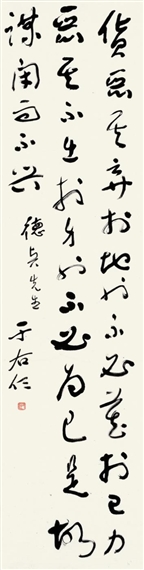 貨惡其棄於地也不必藏於己力
惡其不出於身也不必為己是故
謀閉而不興
德貞先生
于右任